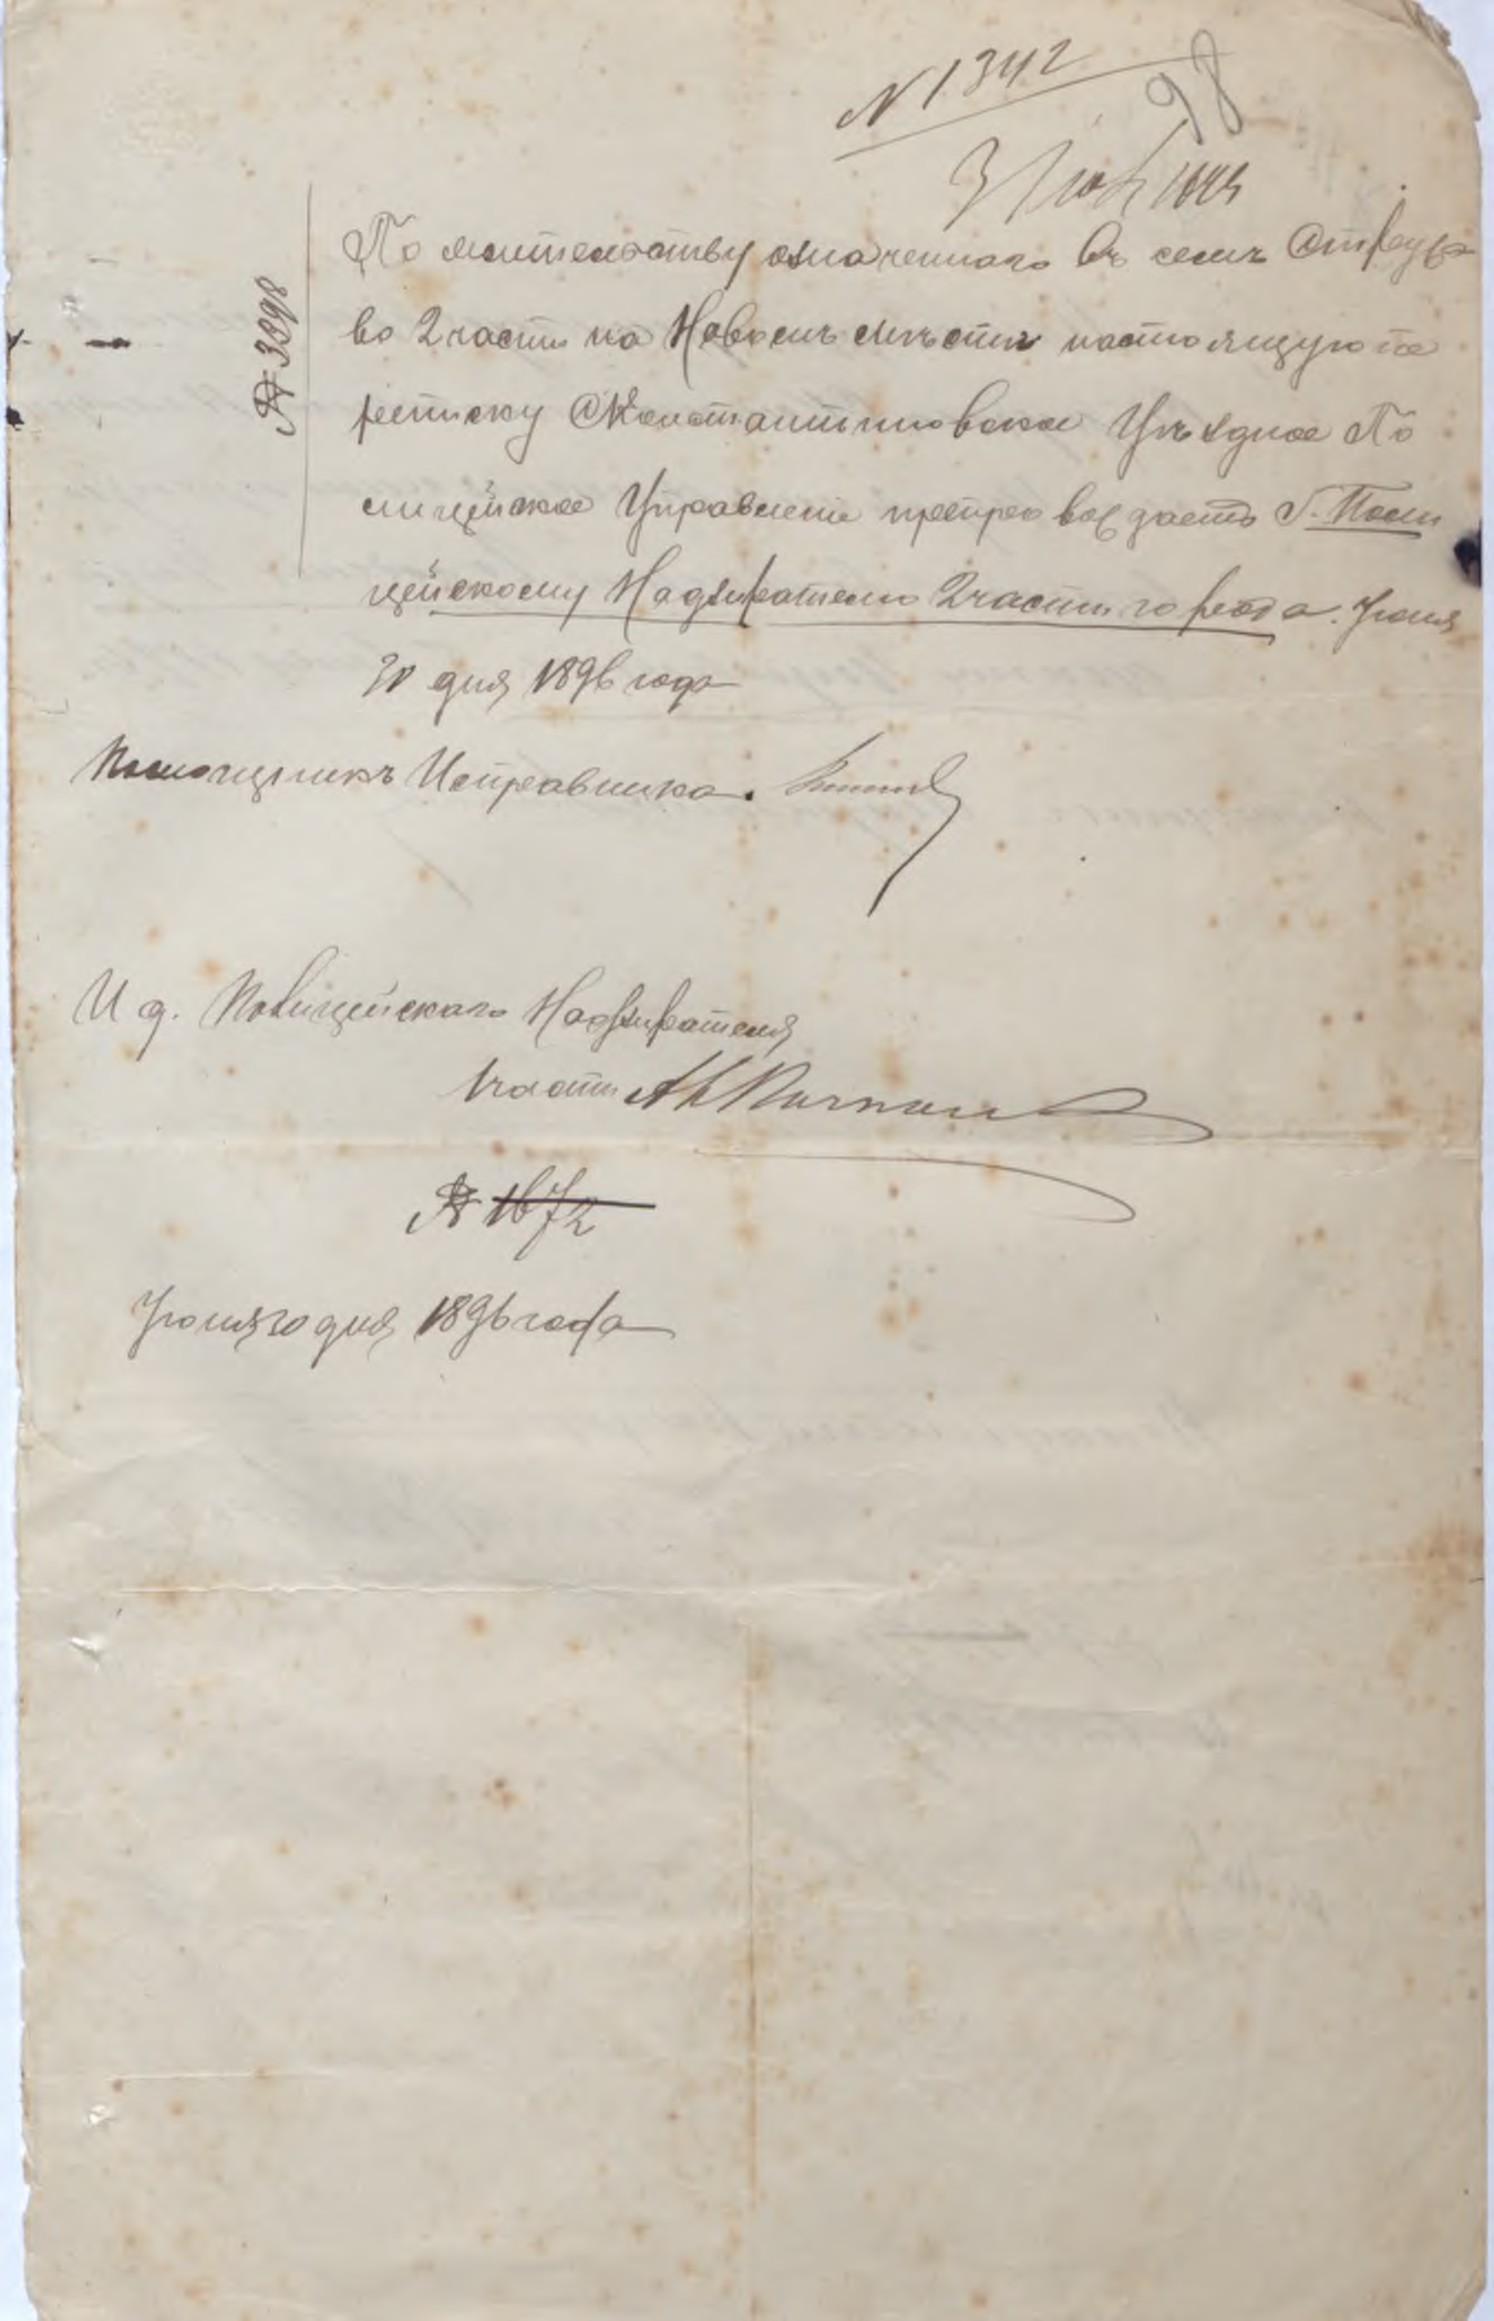 N 1342
98
3
№ 3398
По жительству означеннаго въ семъ
во 2 части на Новомъ мѣстѣ настоящую пе
реписку Константиновское Уѣздное По
лицейское Управленіе препровождаетъ Г. Поли
цейскому Надзирателю 2 части города. Іюня
30 дня 1896 года
Помощникъ Исправника.
И д. Полицейскаго Надзирателя
части
№ 1672
Іюня 30 дня 1896 года